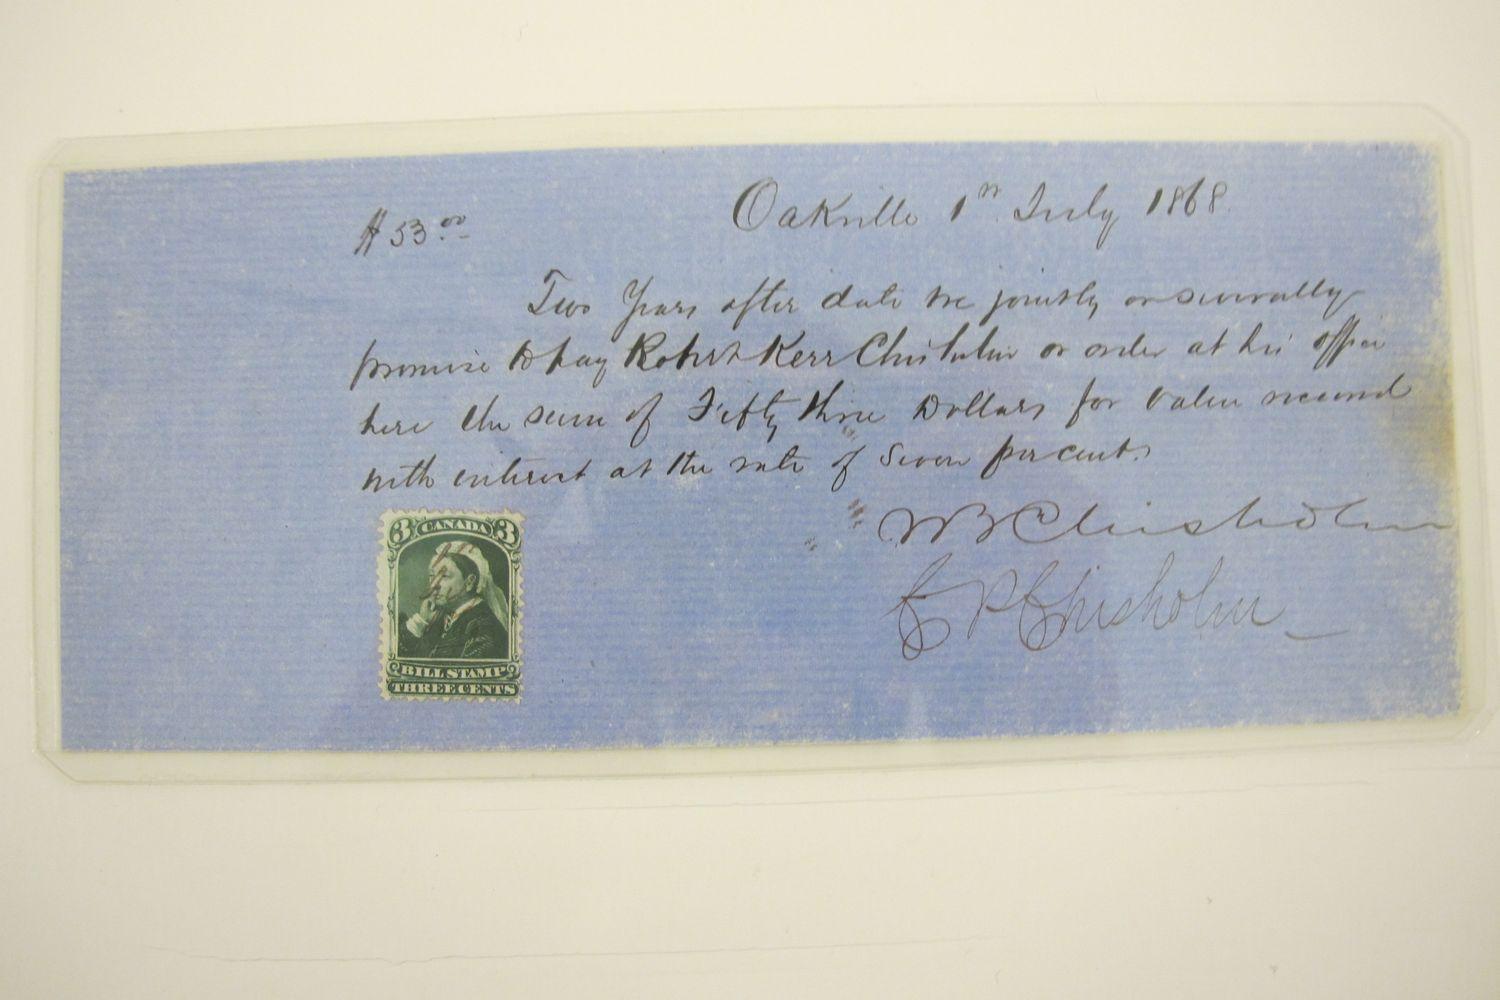 Oakville 1st July 1868.
$53.00
Two Years after date we jointly or severally
promise to pay Robert Kerr Chisholm or order at his office
here the sum of Fifty three Dollars for value received
with interest at the rate of Seven per cent.
W B Chisholm
C P Chisholm
3 CANADA 3
BILL STAMP
THREE CENTS